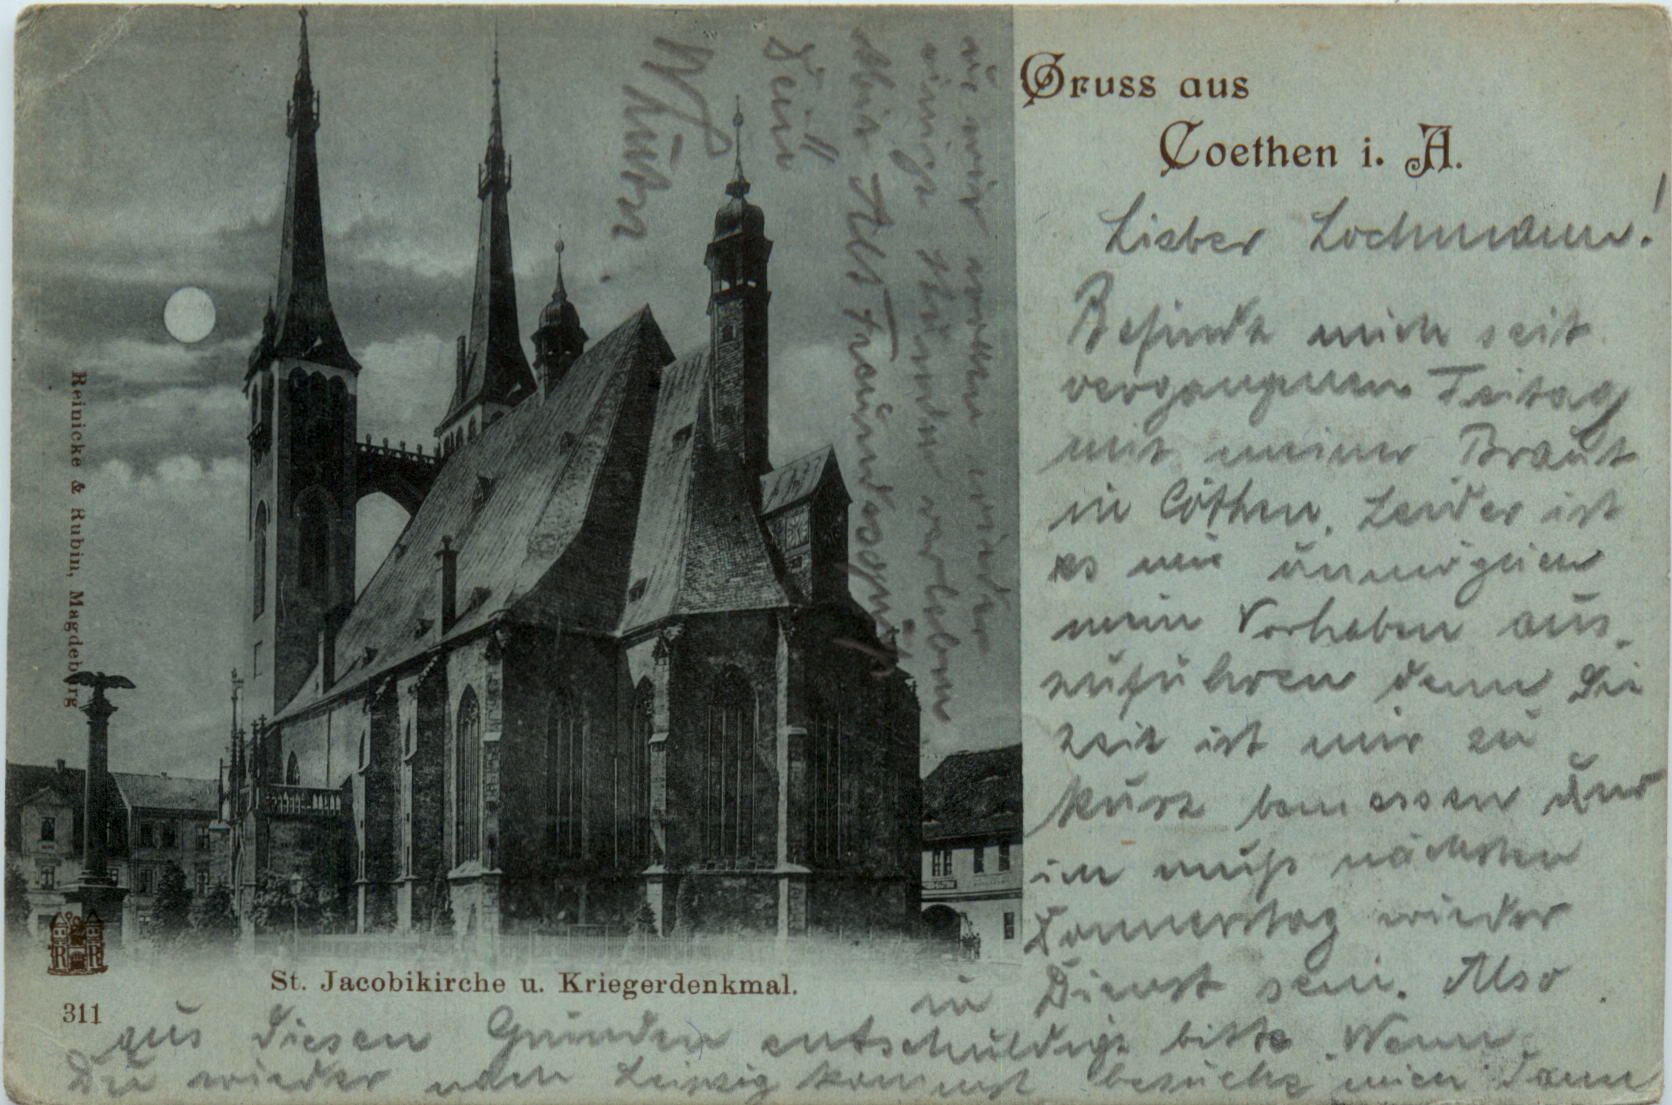 Gruss aus
Coethen i. A.
Lieber Lochmann!
Befinde mich seit
vergangenen Freitag
mit meiner Braut
in Cöthen. Leider ist
es mir unmöglich
mein Vorhaben aus-
zuführen denn die
Zeit ist mir zu
kurz bemessen den
ich muß nächsten
Donnerstag wieder
in Dienst sein. Also
aus diesen Gründen entschuldige bitte. Wenn
Du wieder nach Leipzig kommst besuche mich dann
wir wollen wieder
einige Stunden verleben
Mit Freundesgruß
Dein
Reinicke & Rubin, Magdeburg
R R
St. Jacobikirche u. Kriegerdenkmal.
311